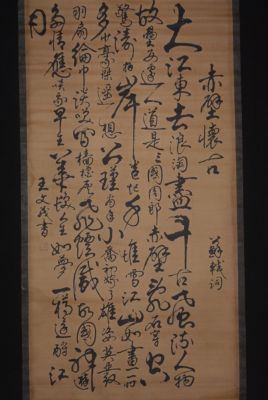 赤壁懷古
蘇軾詞
大江東去浪淘盡千古風流人物
故壘西邊人道是三國周郎赤壁亂石穿空
驚濤拍岸捲起千堆雪江山如畫一時
多少豪傑遙想公瑾當年小喬初嫁了雄姿英發
羽扇綸巾談笑間檣櫓灰飛煙滅故國神遊
多情應笑我早生華髮人生如夢一樽還酹江
月
王文茂書